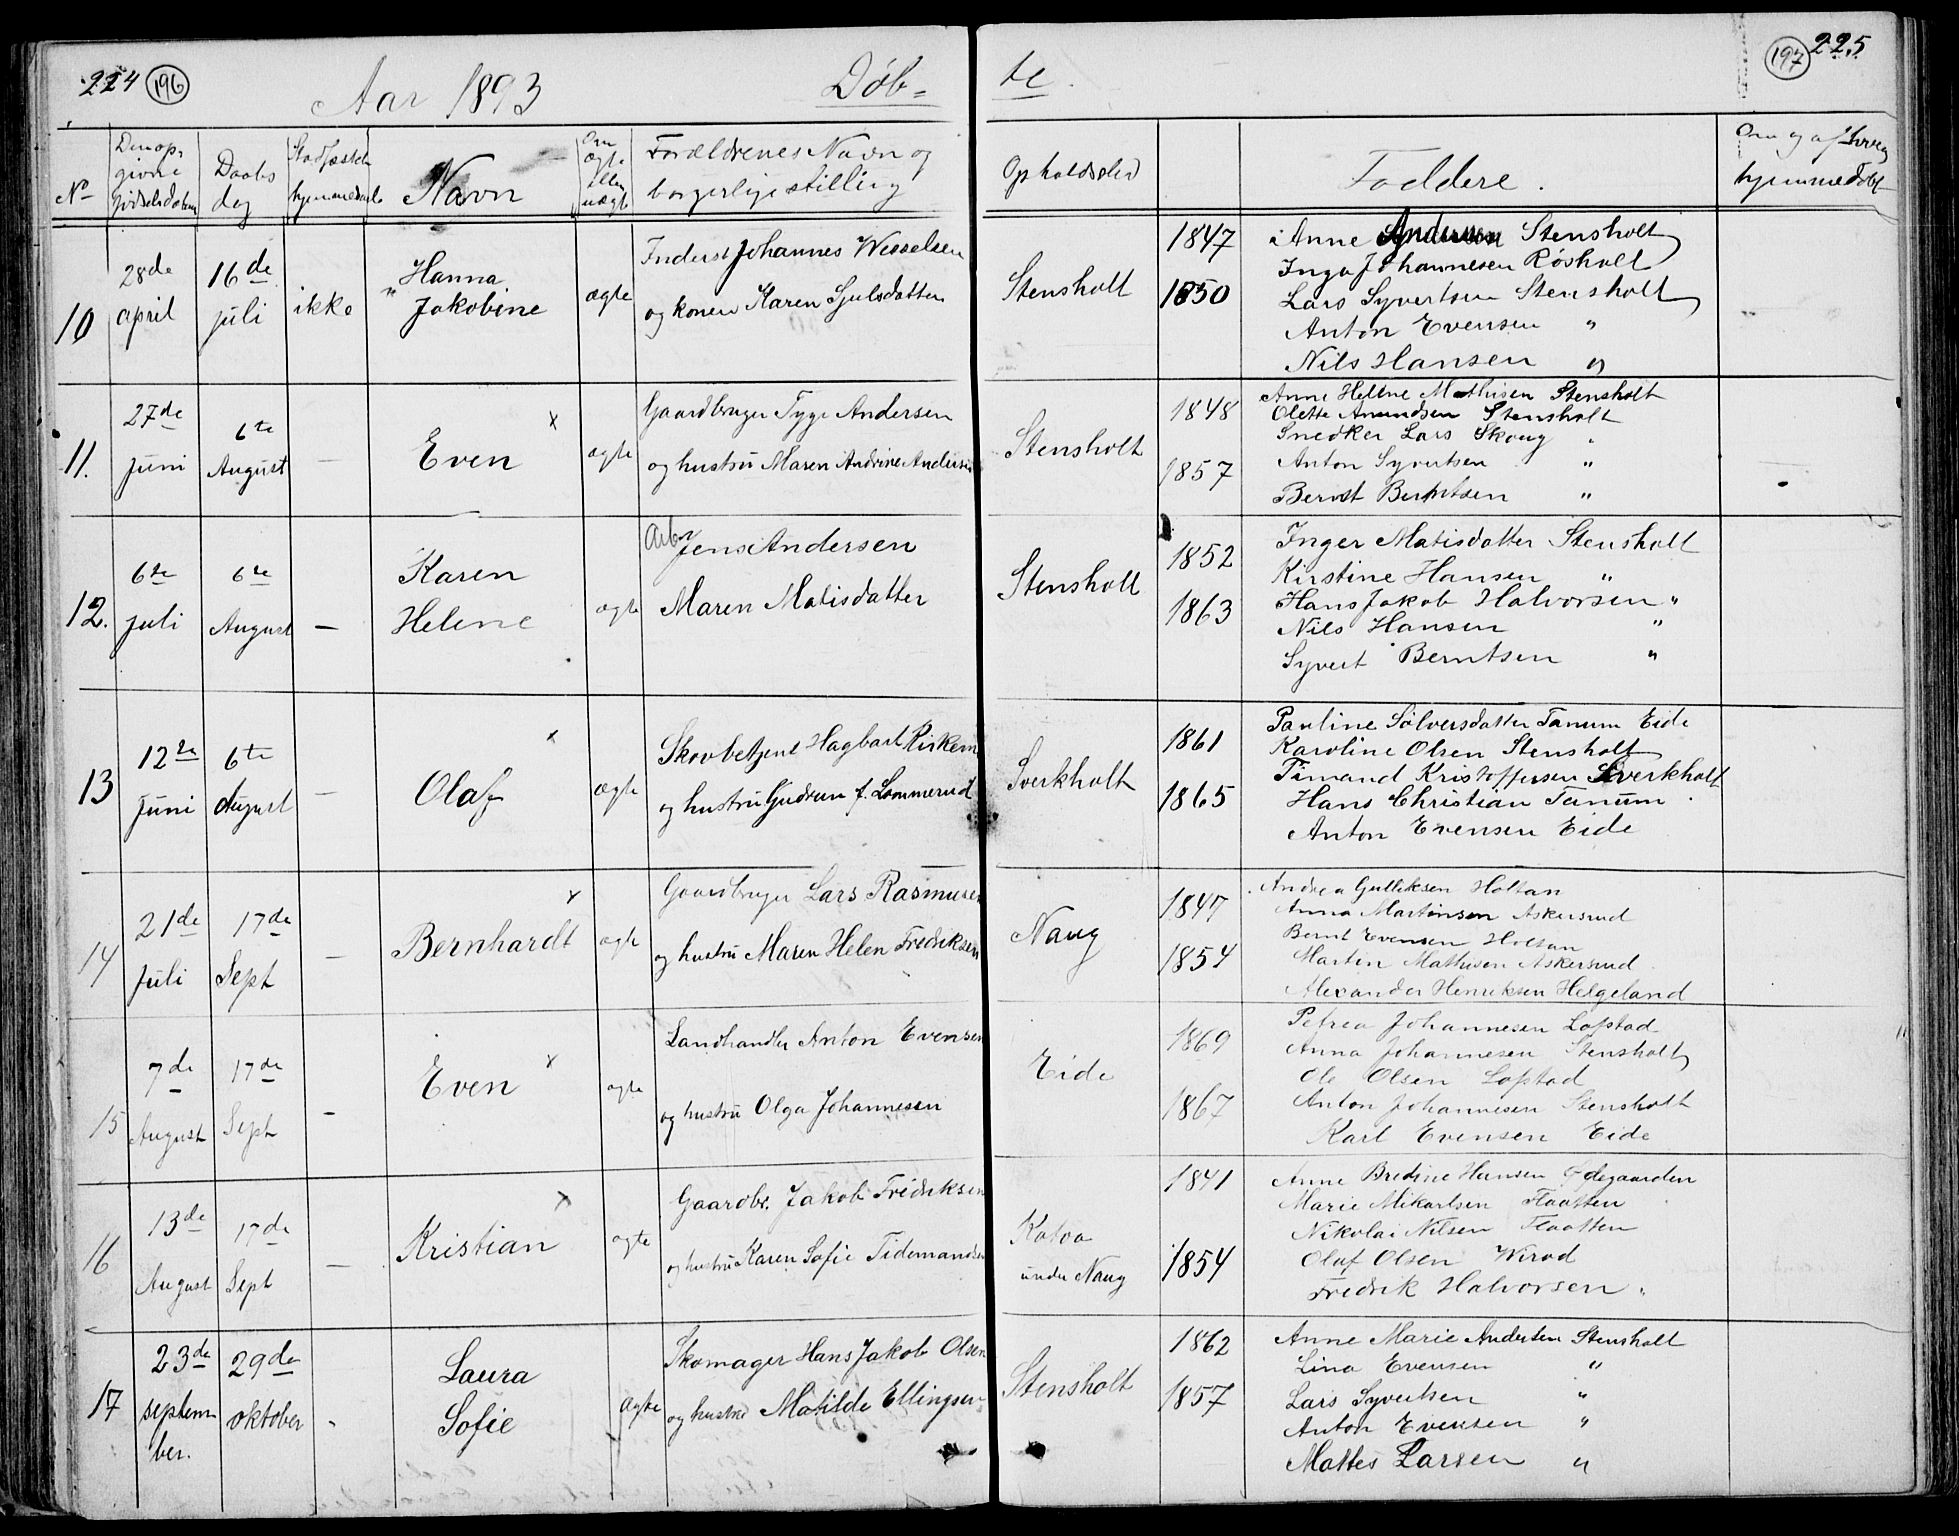 224 196
Aar 1893 Døb=
te.
197 225
No
Den op-
givne
fødselsdatum
Daabs
dag
hjemmedaab
Navn
Om
ægte
eller
uægte
Forældrenes Navn og
borgerlige stilling
Opholdssted
Faddere.
hjemmedøbt
10
28de
april
16de
juli
ikke
Hanna
Jakobine
ægte
Inderst Johannes Wesselsen
og konen Karen Sjulsdatter
Stensholt
1847
1850
Anne Andersen Stensholt
Inga Johannesen Rosholt
Lars Syvertsen Stensholt
Anton Evensen "
Nils Hansen "
11.
27de
juni
6te
August
—
Even
x
ægte
Gaardbruger Tyge Andersen
og hustru Maren Andrine Andersen
Stensholt
1848
1857
Anne Hellene Mathisen Stensholt
Olette Amundsen Stensholt
Snedker Lars Skoug "
Anton Syvertsen "
Bernt Berntsen "
12.
6te
juli
6te
August
—
Karen
Helene
ægte
Arb. Jens Andersen
Maren Matisdatter
Stensholt
1852
1863
Inger Matisdatter Stensholt
Kirstine Hansen "
Hans Jakob Halvorsen "
Nils Hansen "
Syvert Berntsen "
13
12te
juni
6te
August
—
Olaf
x
ægte
Skovbetjent Hagbart Kirkem
og hustru Gudrun f. Lammerud
Sverkholt
1861
1865
Pauline Sølversdatter Tanum Eide
Karoline Olsen Stensholt
Timand Kristoffersen Sverkholt
Hans Christian Tanum
Anton Evensen Eide
14
21de
juli
17de
Sept
—
Bernhardt
x
ægte
Gaardbruger Lars Rasmusen
og hustru Maren Helen Fredriksen
Naug
1847
1854
Andrea Gulliksen Holtan
Anna Martinsen Askersrud
Bernt Evensen Holtan
Martin Mathisen Askersrud
Alexander Henriksen Helgeland
15
7de
August
17de
Sept
—
Even
x
ægte
Landhandler Anton Evensen
og hustru Olga Johannesen
Eide
1869
1867
Petrea Johannesen Lofstad
Anna Johannesen Stensholt
Ole Olsen Lofstad
Anton Johannesen Stensholt
Karl Evensen Eide
16
13de
August
17de
Sept
—
Kristian
x
ægte
Gaardbr. Jakob Fredriksen
og hustru Karen Sofie Tidemandsen
Kataa
under Naug
1841
1854
Anne Bredine Hansen Ødegaarden
Marie Mikarlsen Flaatten
Nikolai Nilsen Flaatten
Oluf Olsen Wirod
Fredrik Halvorsen "
17
23de
septem
ber.
29de
oktober
-
Laura
Sofie
ægte
Skomager Hans Jakob Olsen
og hustru Matilde Ellingsen
Stensholt
1862
1857
Anne Marie Andersen Stensholt
Lina Evensen "
Lars Syvertsen "
Anton Evensen "
Mattes Larsen "